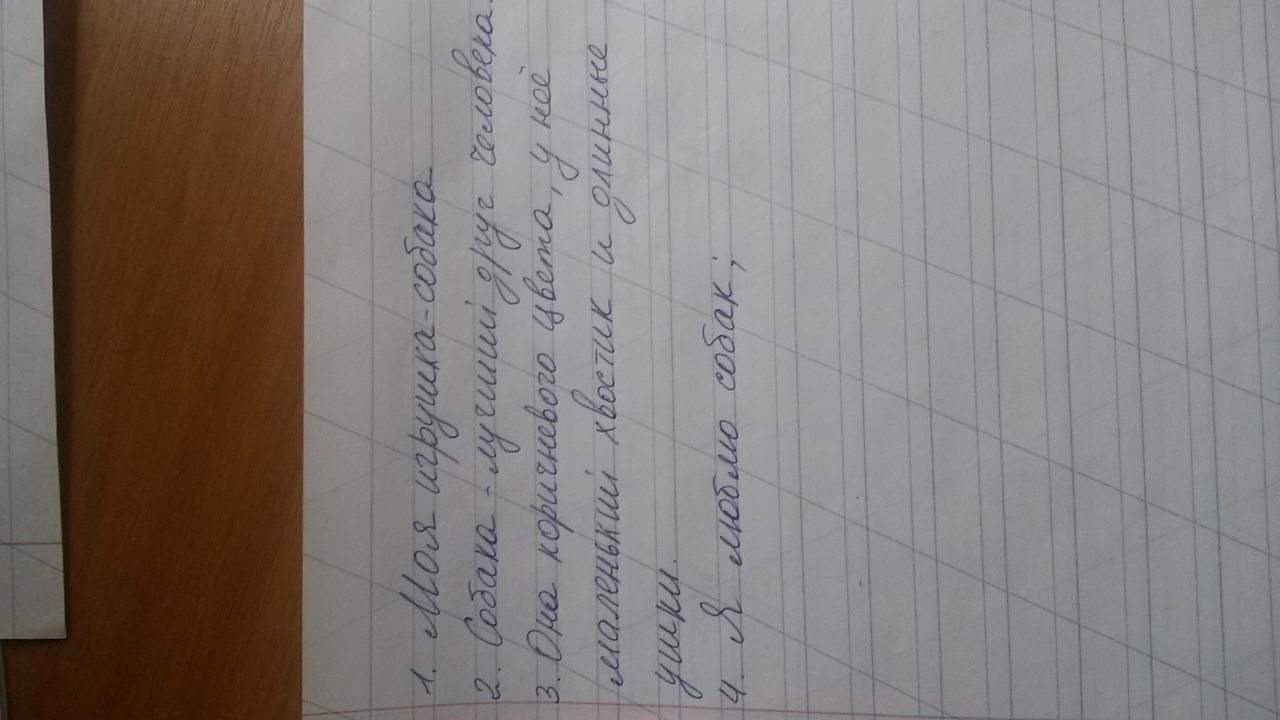 1. Моя игрушка-собака
2. Собака - лучший друг человека.
3. Она коричневого цвета, у неё
маленький хвостик и длинные
ушки.
4. Я люблю собак;